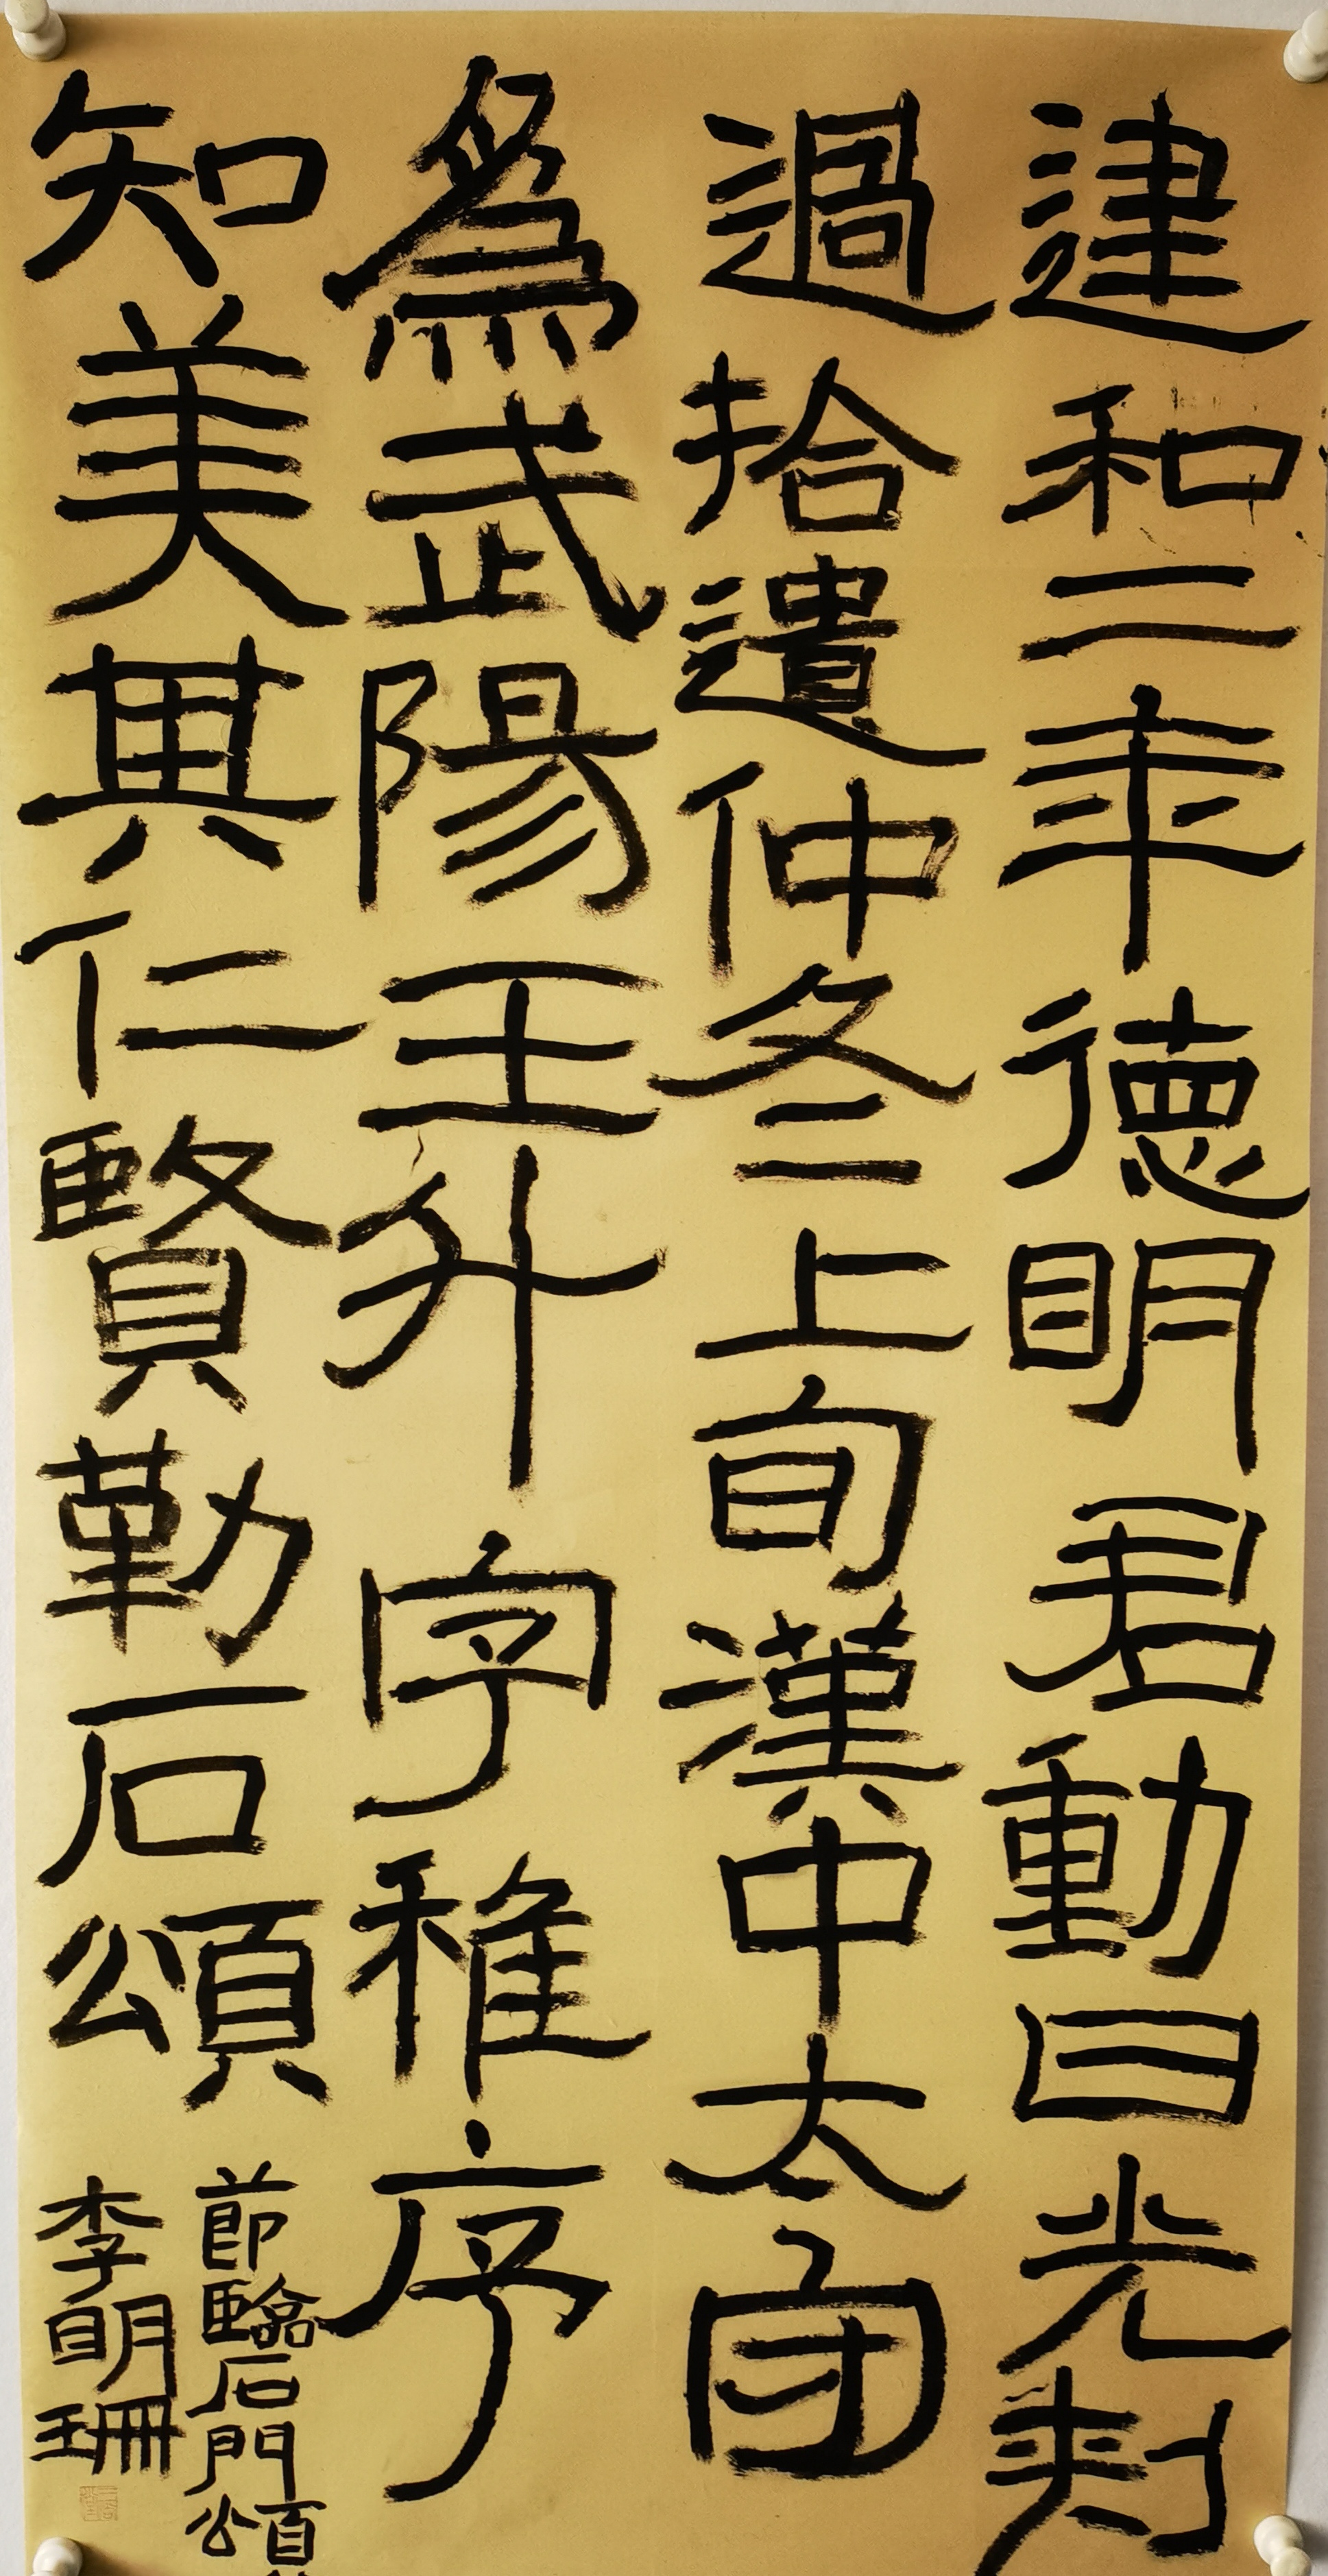 建和二年德明君動曰光刻
過拾遺仲冬上旬漢中太守
為武陽王升字稚序
知美其仁賢勒石頌
節臨石門頌
李明珊